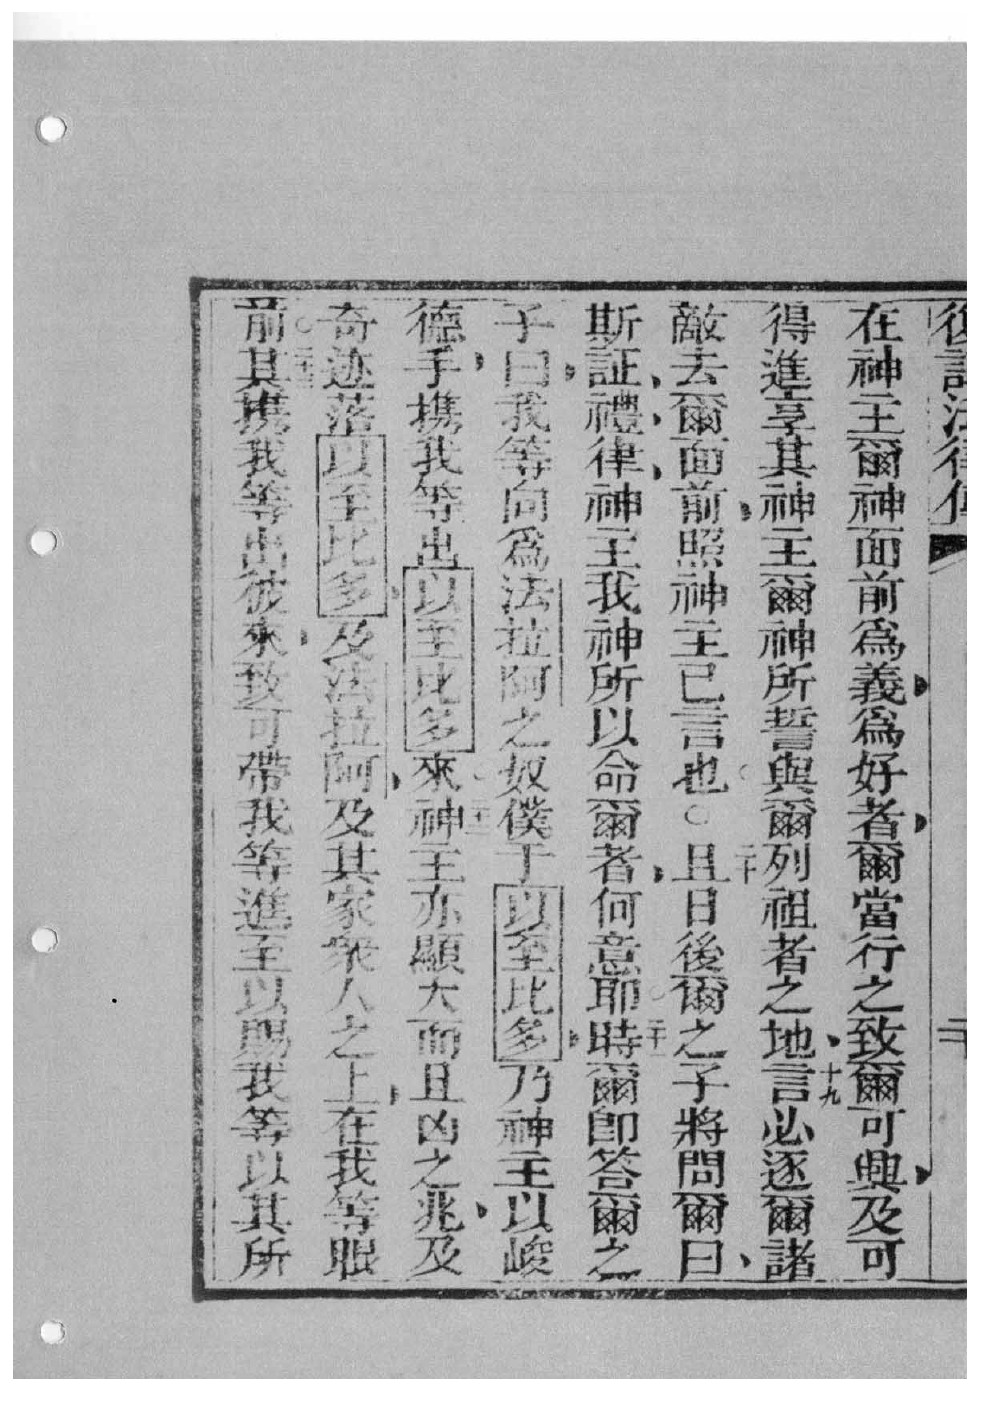 復講法律傳 二十
在神主爾神面前爲義爲好者爾當行之致爾可興及可
得進享其神主爾神所誓與爾列祖者之地十九言必逐爾諸
敵去爾面前照神主已言也○二十且日後爾之子將問爾曰
斯証禮律神主我神所以命爾者何意耶二十一時爾卽答爾之
子曰我等向爲法拉阿之奴僕于以至比多乃神主以峻
德手携我等出以至比多來二十二神主亦顯大而且凶之兆及
奇迹落以至比多及法拉阿及其家衆人之上在我等眼
前○二十三其携我等出彼來致可帶我等進至以賜我等以其所